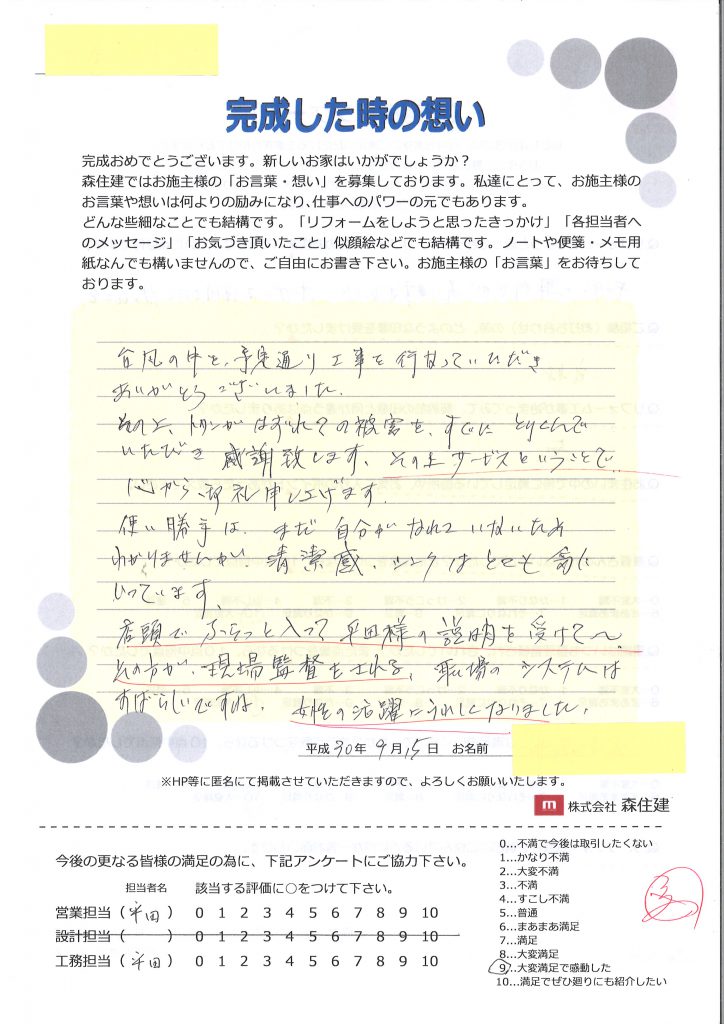 完成した時の想い
完成おめでとうございます。新しいお家はいかがでしょうか？
森住建ではお施主様の「お言葉・想い」を募集しております。私達にとって、お施主様の
お言葉や想いは何よりの励みになり、仕事へのパワーの元でもあります。
どんな些細なことでも結構です。「リフォームをしようと思ったきっかけ」「各担当者へ
のメッセージ」「お気づき頂いたこと」似顔絵などでも結構です。ノートや便箋・メモ用
紙なんでも構いませんので、ご自由にお書き下さい。お施主様の「お言葉」をお待ちして
おります。
台風の中を、予定通り工事を行なっていただき
ありがとうございました。
その上、トタンがはずれての被害を、すぐに とりくんで
いただき 感謝致します、その上サービスということで
心から御礼申し上げます。
使い勝手は、まだ自分がなれていないため
わかりませんが、清潔感、シンクはとても気に
いっています、
店頭で ふらっと入って 平田様の説明を受けて〜、
その方が、現場監督もされる、職場のシステムは
すばらしいですね、女性の活躍にうれしくなりました、
平成 30年 9月 15日 お名前
※HP等に匿名にて掲載させていただきますので、よろしくお願いいたします。
m 株式会社 森住建
今後の更なる皆様の満足の為に、下記アンケートにご協力下さい。
担当者名 該当する評価に○をつけて下さい。
営業担当（平田）0 1 2 3 4 5 6 7 8 9 10
設計担当（ ）0 1 2 3 4 5 6 7 8 9 10
工務担当（平田）0 1 2 3 4 5 6 7 8 9 10
0…不満で今後は取引したくない
1…かなり不満
2…大変不満
3…不満
4…すこし不満
5…普通
6…まあまあ満足
7…満足
8…大変満足
9…大変満足で感動した
10…満足でぜひ廻りにも紹介したい